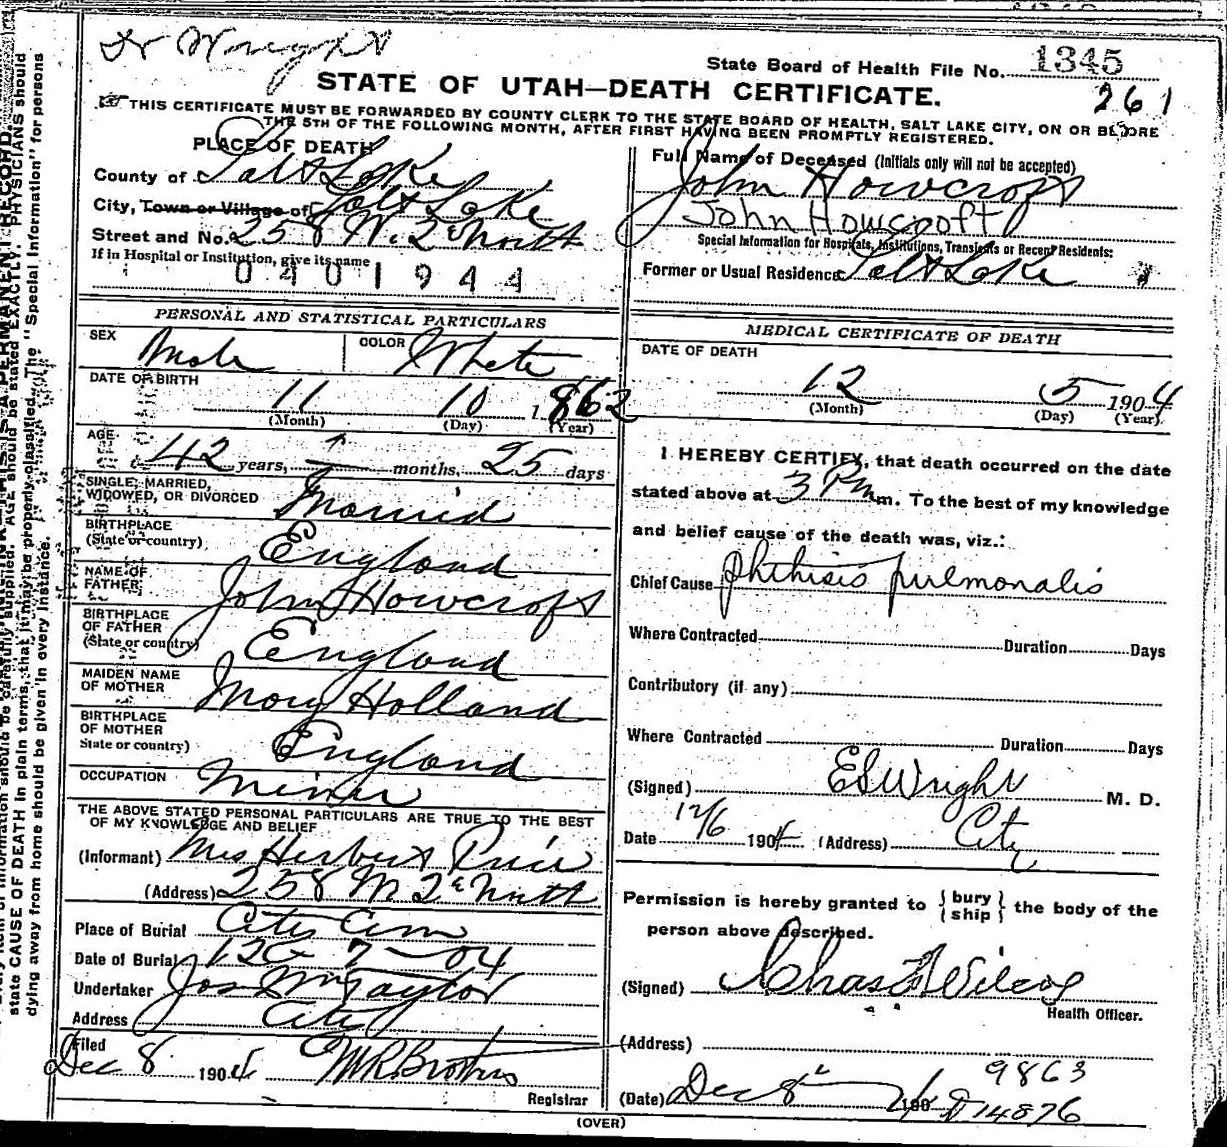 Dr Wright
State Board of Health File No. 1345
261
STATE OF UTAH—DEATH CERTIFICATE.
THIS CERTIFICATE MUST BE FORWARDED BY COUNTY CLERK TO THE STATE BOARD OF HEALTH, SALT LAKE CITY, ON OR BEFORE
THE 5TH OF THE FOLLOWING MONTH, AFTER FIRST HAVING BEEN PROMPTLY REGISTERED.
PLACE OF DEATH
County of Salt Lake
City, Town or Village of Salt Lake
Street and No. 258 W. 2d North
If in Hospital or Institution, give its name
0401944
Full Name of Deceased (Initials only will not be accepted)
John Howcroft
John Howcroft
Special Information for Hospitals, Institutions, Transients or Recent Residents:
Former or Usual Residence Salt Lake
PERSONAL AND STATISTICAL PARTICULARS
SEX Male COLOR White
DATE OF BIRTH
11 10 1862
(Month) (Day) (Year)
AGE
42 years, months, 25 days
SINGLE, MARRIED,
WIDOWED, OR DIVORCED Married
BIRTHPLACE
(State or country) England
NAME OF
FATHER John Howcroft
BIRTHPLACE
OF FATHER
(State or country) England
MAIDEN NAME
OF MOTHER Mary Holland
BIRTHPLACE
OF MOTHER
State or country) England
OCCUPATION Miner
THE ABOVE STATED PERSONAL PARTICULARS ARE TRUE TO THE BEST
OF MY KNOWLEDGE AND BELIEF
(Informant) Mrs Herbert Price
(Address) 258 W 2d North
Place of Burial City Cem
Date of Burial 12 7-04
Undertaker Jos Wm Taylor
Address City
Filed
Dec 8 1904
Registrar
MEDICAL CERTIFICATE OF DEATH
DATE OF DEATH
12 5 1904
(Month) (Day) (Year)
I HEREBY CERTIFY, that death occurred on the date
stated above at 3 P m. To the best of my knowledge
and belief cause of the death was, viz.:
Chief Cause phthisis pulmonalis
Where Contracted Duration Days
Contributory (if any)
Where Contracted Duration Days
(Signed) ES Wright M. D.
Date 12/6 1904 (Address) City
Permission is hereby granted to { bury
ship } the body of the
person above described.
(Signed) Chas F Wilcox
Health Officer.
(Address)
9863
(Date) Dec 8 190
14876
(OVER)
state CAUSE OF DEATH in plain terms, that it may be properly classified. The "Special Information" for persons
dying away from home should be given in every instance.